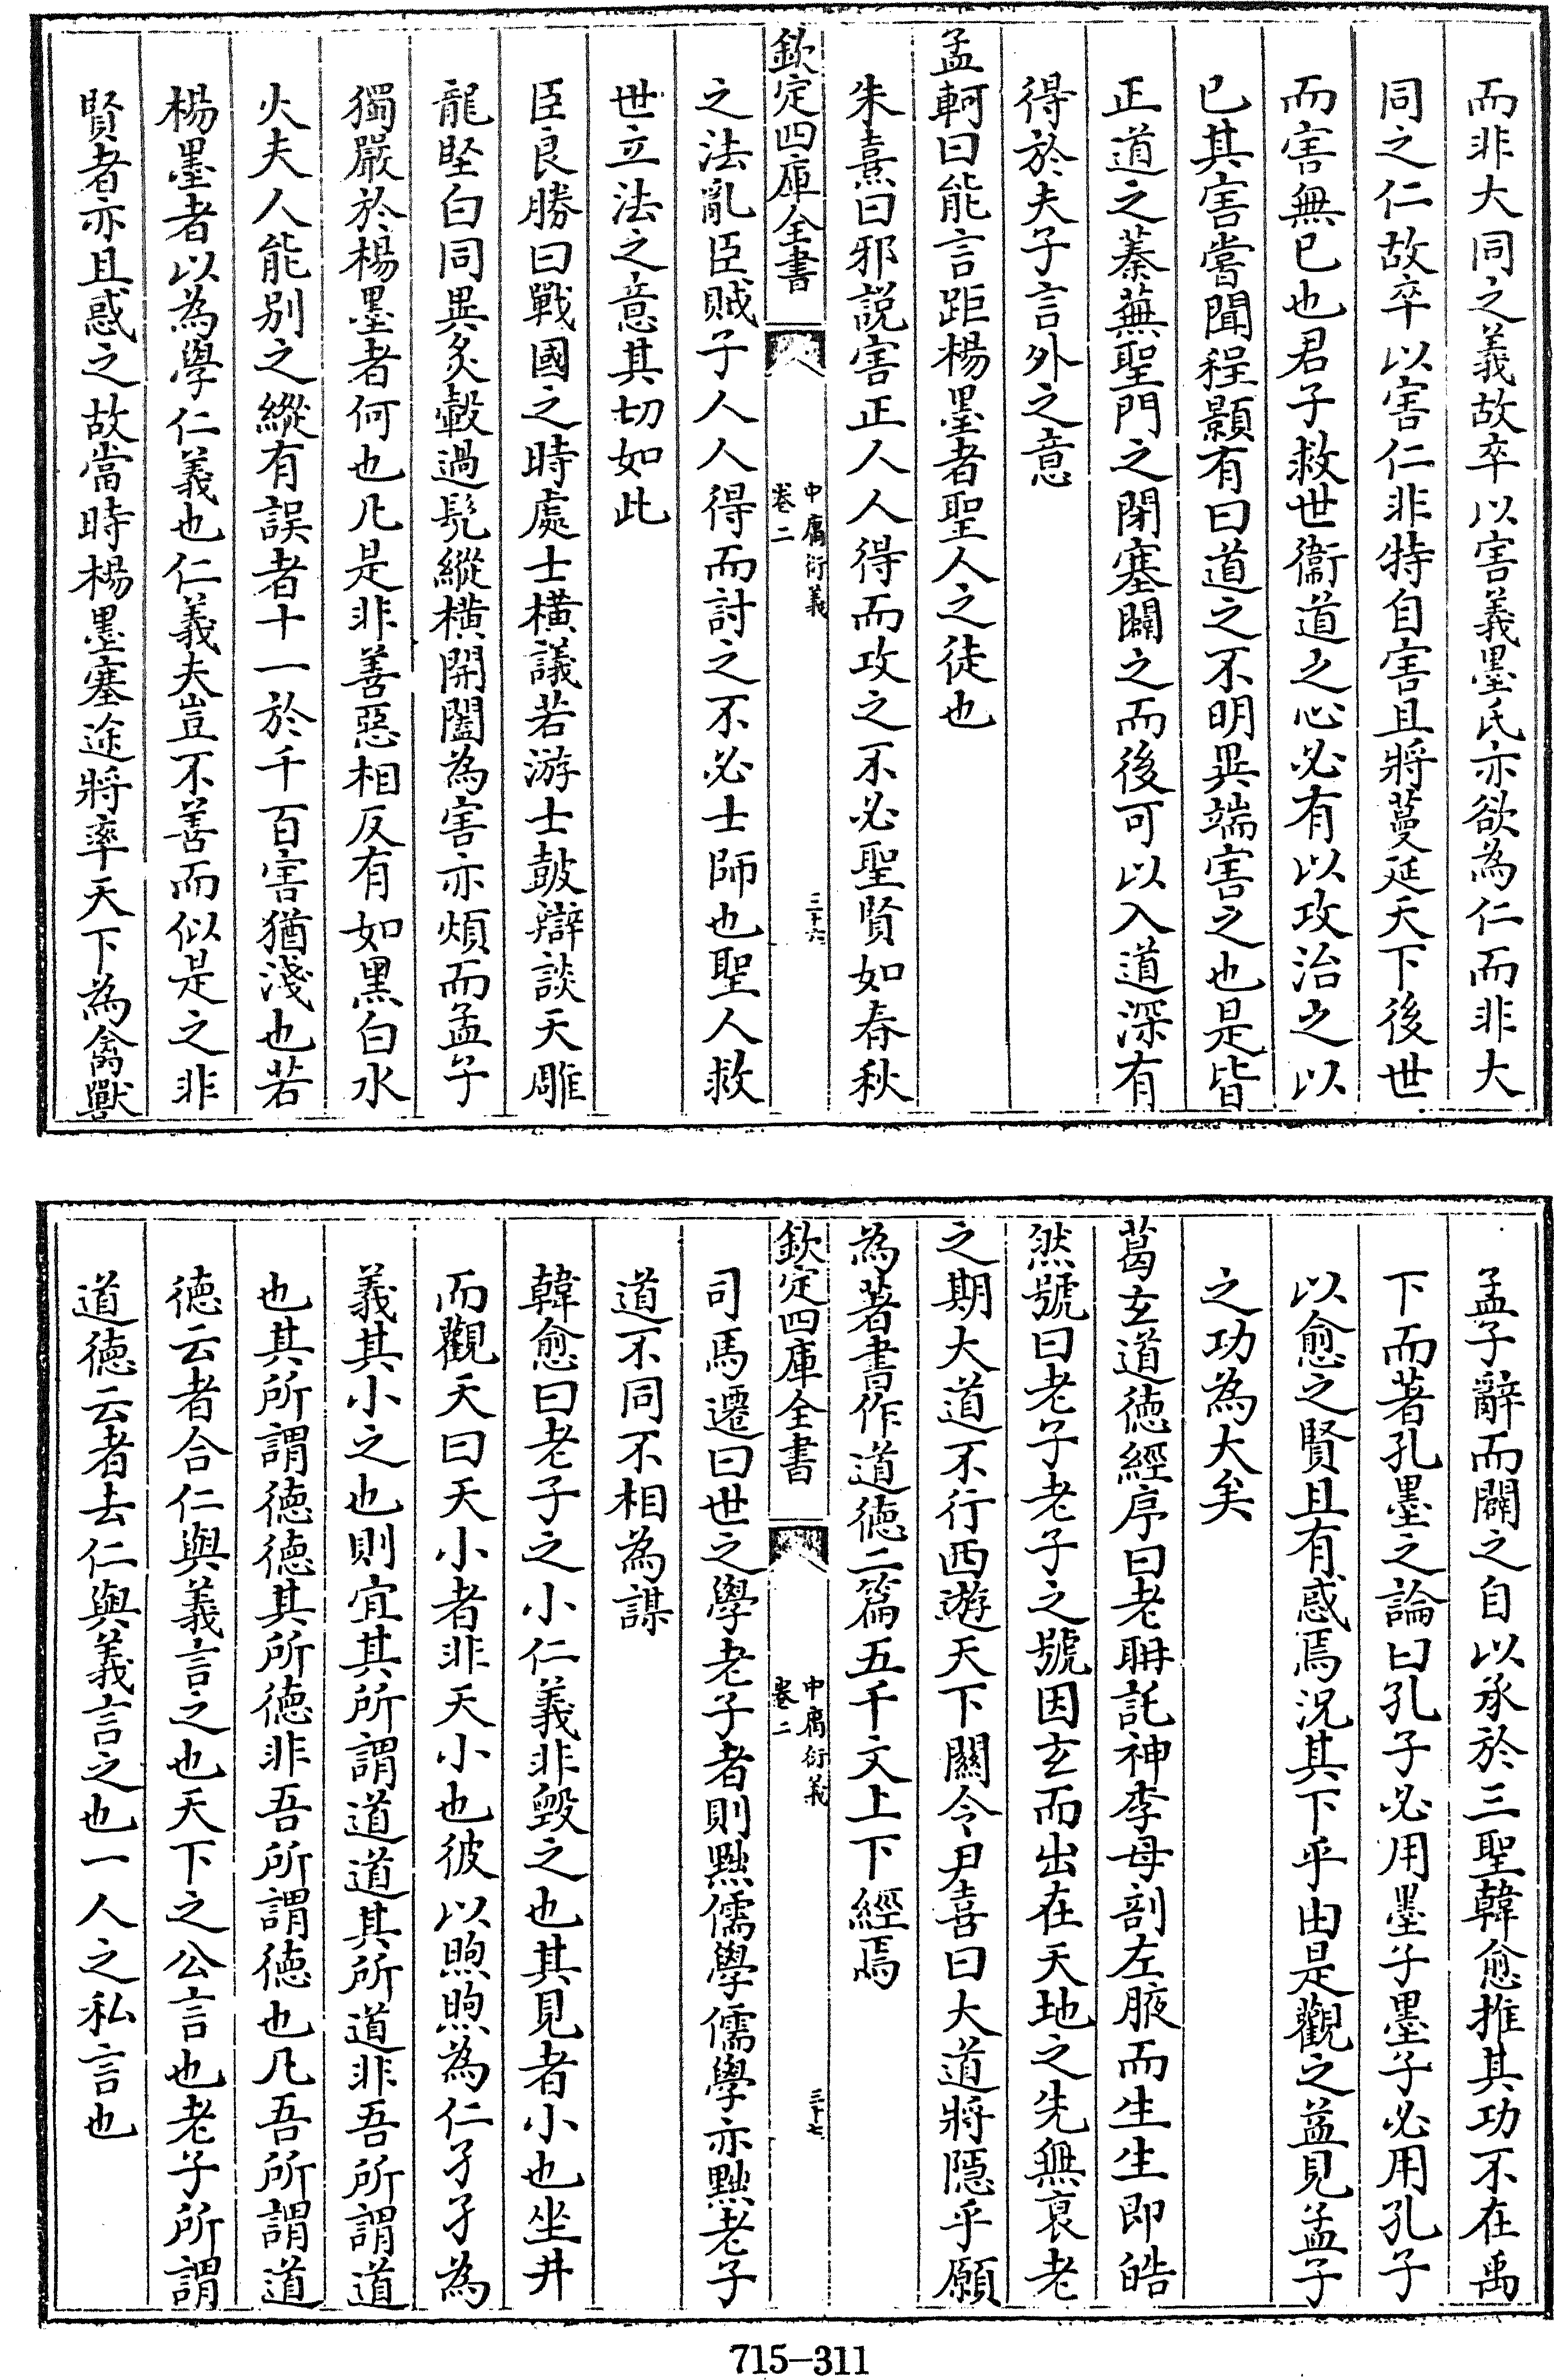 而非大同之義故卒以害義墨氏亦欲為仁而非大
同之仁故卒以害仁非特自害且將蔓延天下後世
而害無已也君子救世衞道之心必有以攻治之以
已其害嘗聞程顥有曰道之不明異端害之也是皆
正道之蓁蕪聖門之閉塞闢之而後可以入道深有
得於夫子言外之意
孟軻曰能言距楊墨者聖人之徒也
朱熹曰邪説害正人人得而攻之不必聖賢如春秋
欽定四庫全書
中庸衍義
卷二
三十六
之法亂臣賊子人人得而討之不必士師也聖人救
世立法之意其切如此
臣良勝曰戰國之時處士橫議若游士鼓辯談天雕
龍堅白同異炙轂過髠縱橫開闔為害亦煩而孟子
獨嚴於楊墨者何也凡是非善惡相反有如黑白水
火夫人能別之縱有誤者十一於千百害猶淺也若
楊墨者以為學仁義也仁義夫豈不善而似是之非
賢者亦且惑之故當時楊墨塞途將率天下為禽獸
孟子辭而闢之自以承於三聖韓愈推其功不在禹
下而著孔墨之論曰孔子必用墨子墨子必用孔子
以愈之賢且有惑焉況其下乎由是觀之益見孟子
之功為大矣
葛玄道徳經序曰老聃託神李母剖左腋而生生即皓
然號曰老子老子之號因玄而出在天地之先無衰老
之期大道不行西遊天下關令尹喜曰大道將隱乎願
為著書作道徳二篇五千文上下經焉
欽定四庫全書
中庸衍義
卷二
三十七
司馬遷曰世之學老子者則黜儒學儒學亦黜老子
道不同不相為謀
韓愈曰老子之小仁義非毀之也其見者小也坐井
而觀天曰天小者非天小也彼以煦煦為仁孑孑為
義其小之也則宜其所謂道道其所道非吾所謂道
也其所謂徳徳其所徳非吾所謂徳也凡吾所謂道
徳云者合仁與義言之也天下之公言也老子所謂
道徳云者去仁與義言之也一人之私言也
715-311